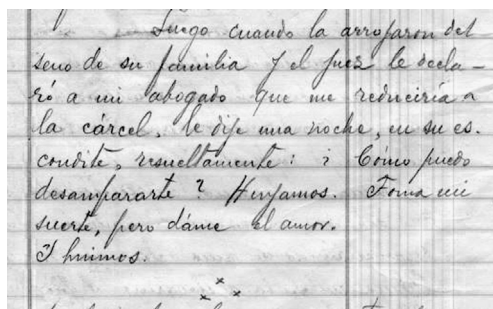 Luego cuando la arrojaron del
seno de su familia y el juez le decla-
ró a mi abogado que me reduciría a
la cárcel, le dije una noche, en su es-
condite, resueltamente: ¿Cómo puedo
desampararte? Huyamos. Toma mi
suerte, pero dáme el amor.
I huimos.
x x x